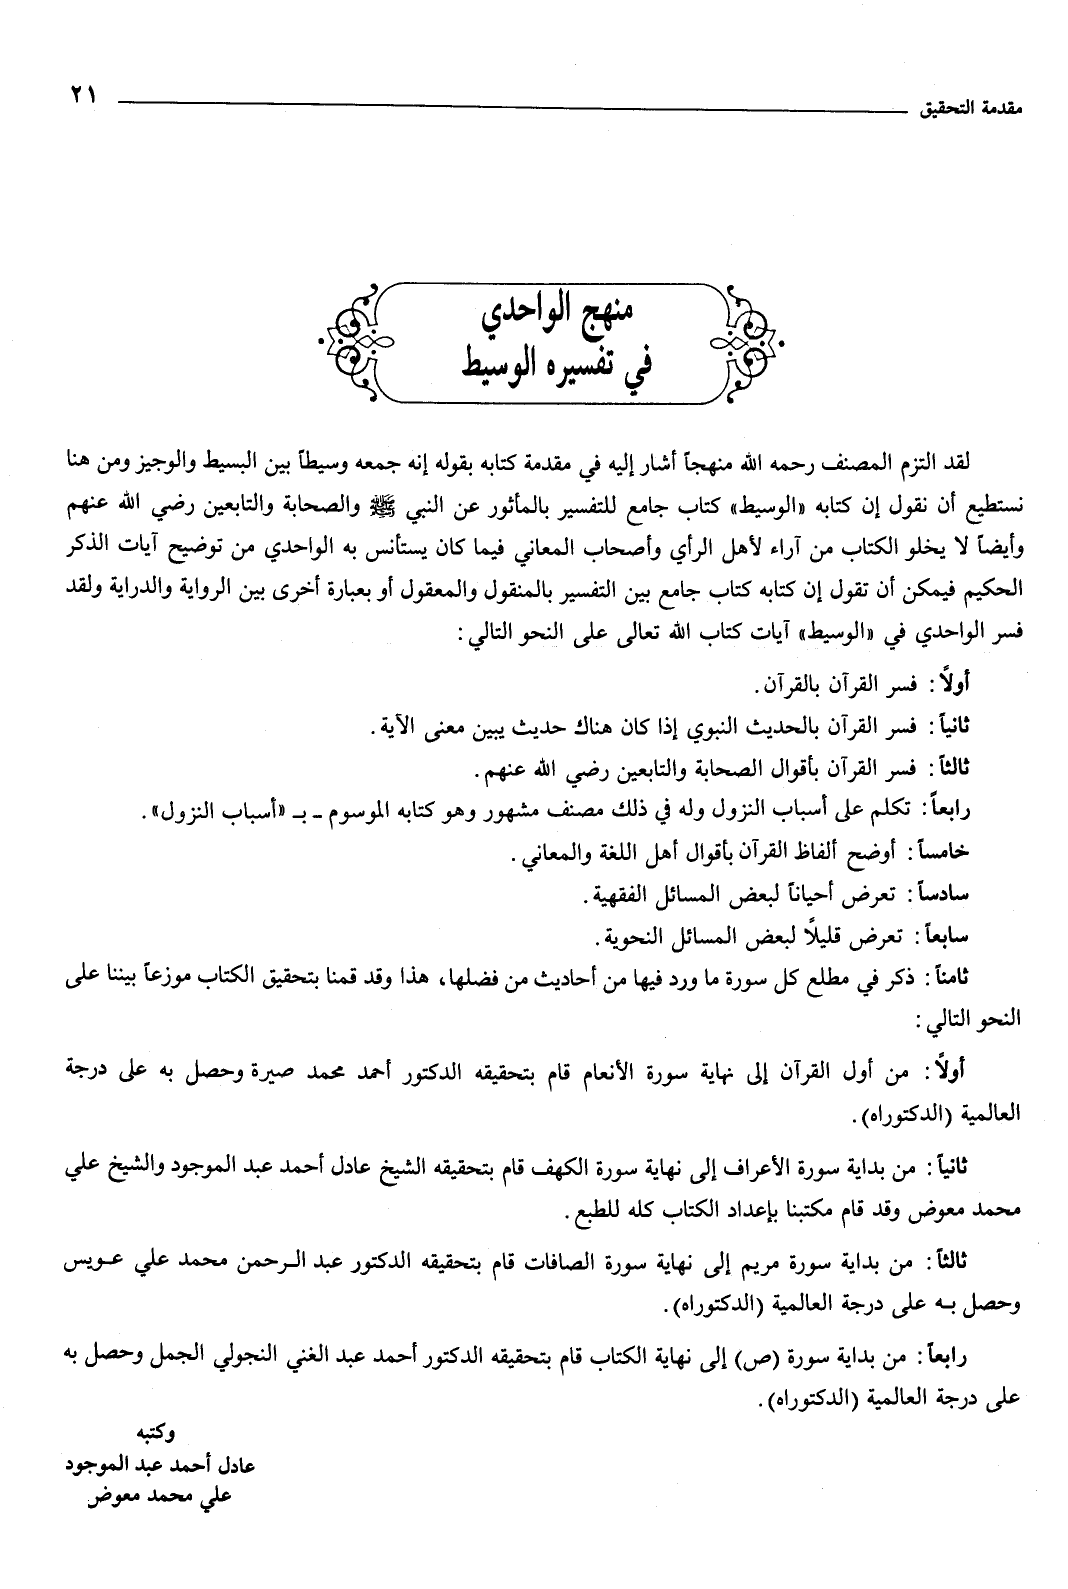 مقدمة التحقيق ٢١
منهج الواحدي
في تفسيره الوسيط
لقد التزم المصنف رحمه الله منهجاً أشار إليه في مقدمة كتابه بقوله إنه جمعه وسيطاً بين البسيط والوجيز ومن هنا
نستطيع أن نقول إن كتابه «الوسيط» كتاب جامع للتفسير بالمأثور عن النبي ﷺ والصحابة والتابعين رضي الله عنهم
وأيضاً لا يخلو الكتاب من آراء لأهل الرأي وأصحاب المعاني فيما كان يستأنس به الواحدي من توضيح آيات الذكر
الحكيم فيمكن أن تقول إن كتابه كتاب جامع بين التفسير بالمنقول والمعقول أو بعبارة أخرى بين الرواية والدراية ولقد
فسر الواحدي في «الوسيط» آيات كتاب الله تعالى على النحو التالي:
أولاً: فسر القرآن بالقرآن.
ثانياً: فسر القرآن بالحديث النبوي إذا كان هناك حديث يبين معنى الآية.
ثالثاً: فسر القرآن بأقوال الصحابة والتابعين رضي الله عنهم.
رابعاً: تكلم على أسباب النزول وله في ذلك مصنف مشهور وهو كتابه الموسوم ـ بـ «أسباب النزول».
خامساً: أوضح ألفاظ القرآن بأقوال أهل اللغة والمعاني.
سادساً: تعرض أحياناً لبعض المسائل الفقهية.
سابعاً: تعرض قليلاً لبعض المسائل النحوية.
ثامناً: ذكر في مطلع كل سورة ما ورد فيها من أحاديث من فضلها، هذا وقد قمنا بتحقيق الكتاب موزعاً بيننا على
النحو التالي:
أولاً: من أول القرآن إلى نهاية سورة الأنعام قام بتحقيقه الدكتور أحمد محمد صيرة وحصل به على درجة
العالمية (الدكتوراه).
ثانياً: من بداية سورة الأعراف إلى نهاية سورة الكهف قام بتحقيقه الشيخ عادل أحمد عبد الموجود والشيخ علي
محمد معوض وقد قام مكتبنا بإعداد الكتاب كله للطبع.
ثالثاً: من بداية سورة مريم إلى نهاية سورة الصافات قام بتحقيقه الدكتور عبد الـرحمن محمد علي عـويس
وحصل بـه على درجة العالمية (الدكتوراه).
رابعاً: من بداية سورة (ص) إلى نهاية الكتاب قام بتحقيقه الدكتور أحمد عبد الغني النجولي الجمل وحصل به
على درجة العالمية (الدكتوراه).
وكتبه
عادل أحمد عبد الموجود
علي محمد معوض